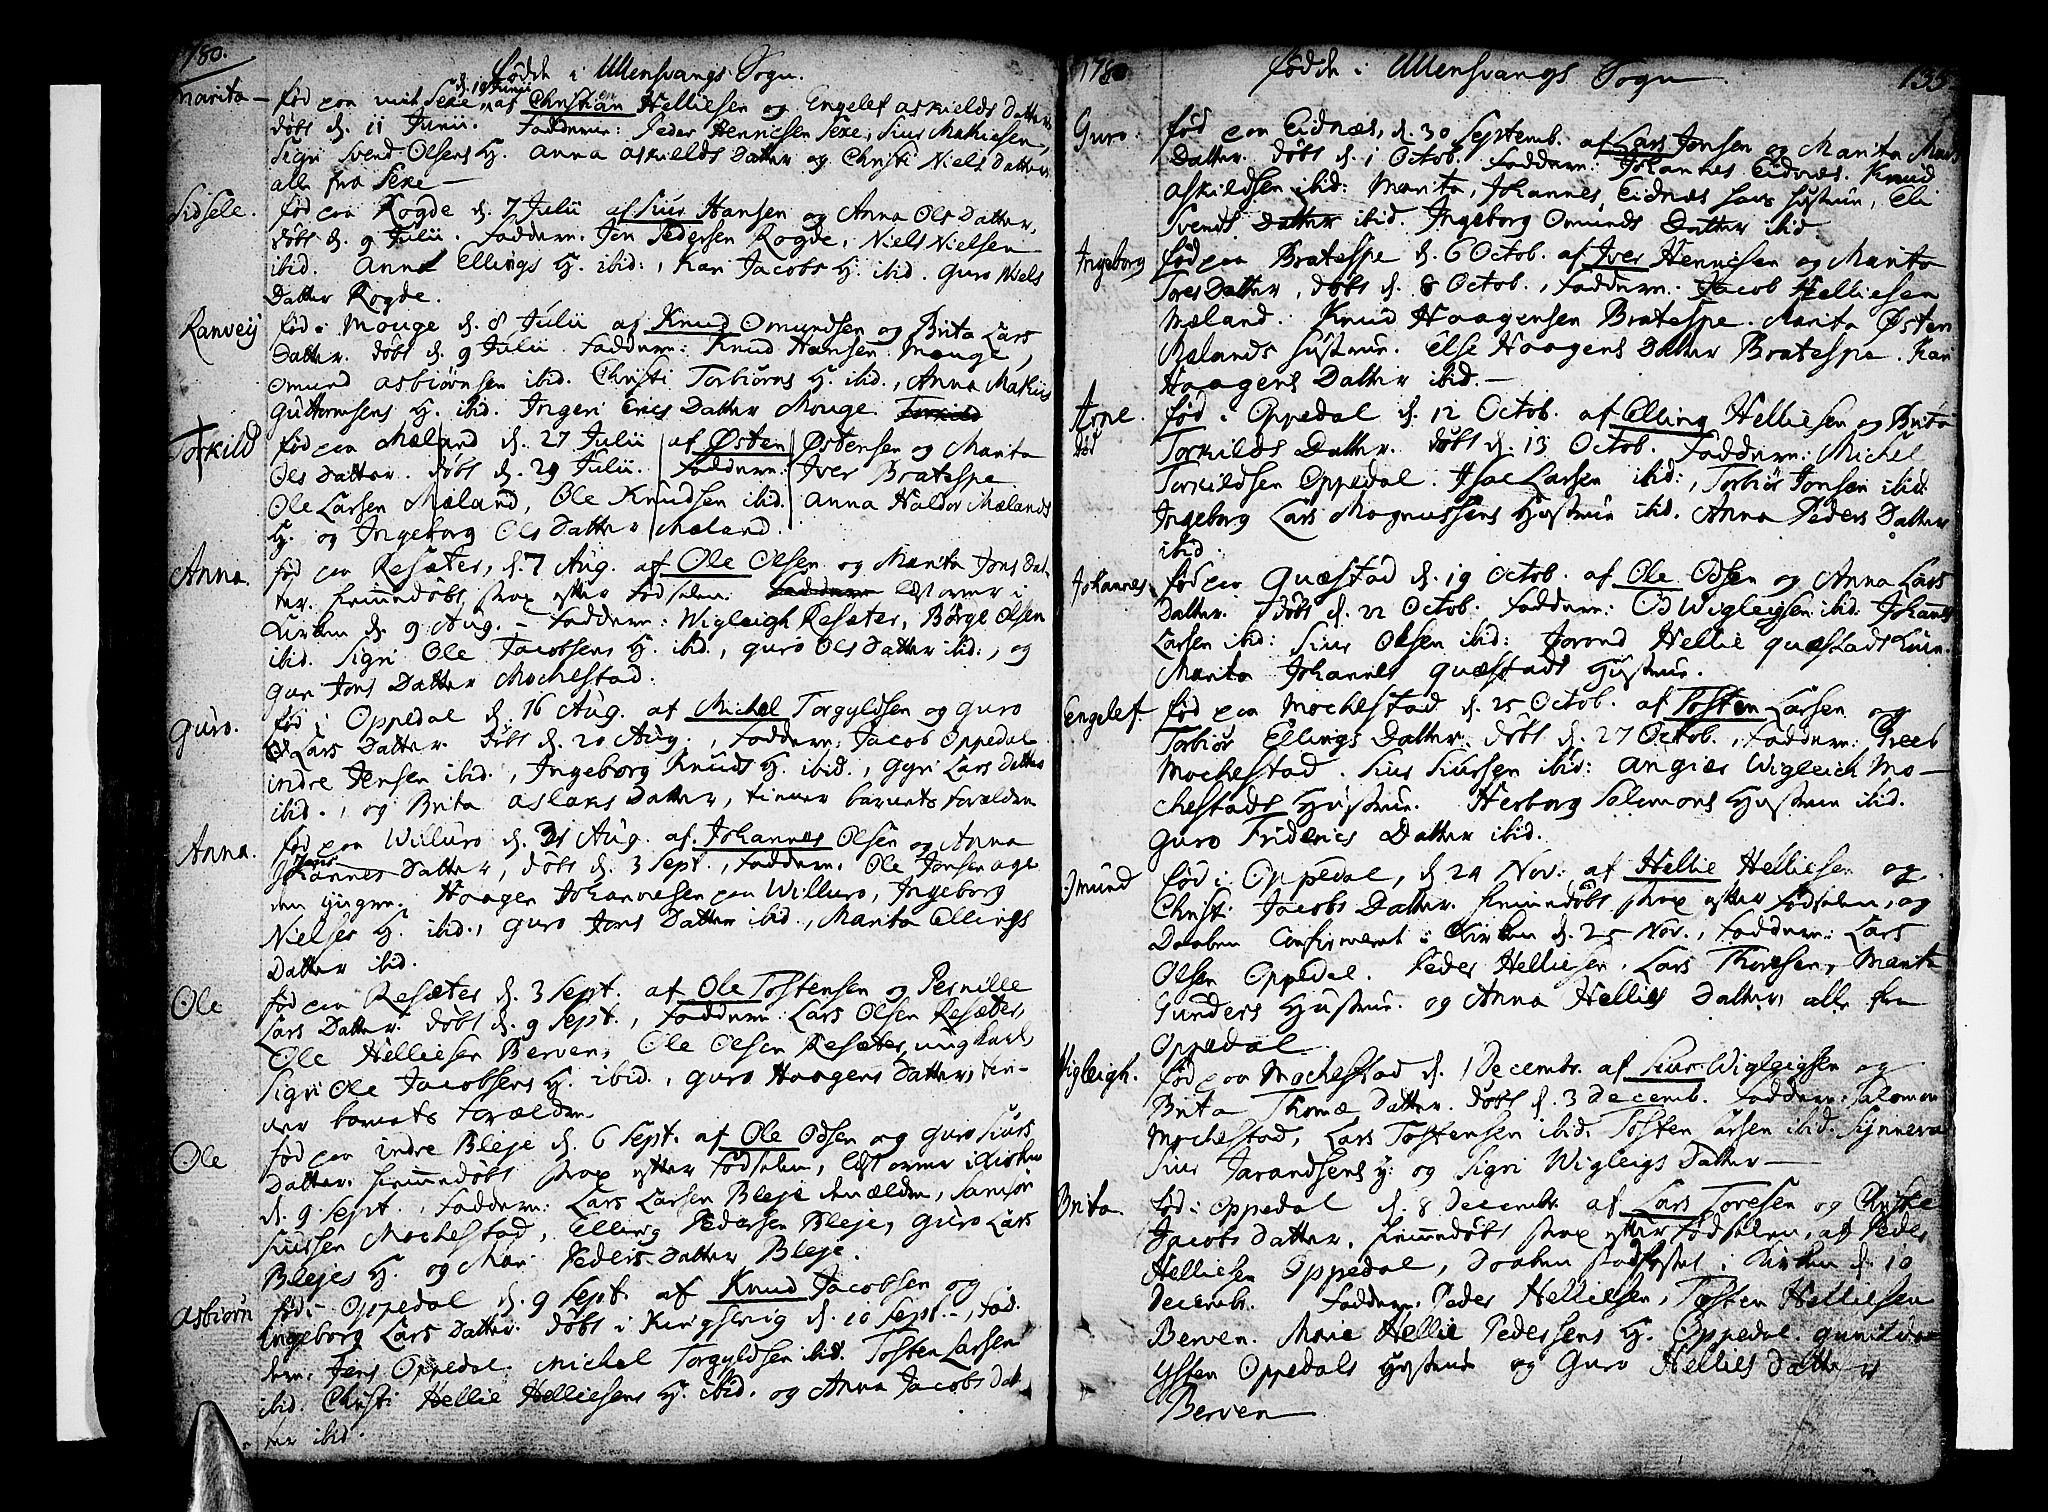 1780.
Fødde i Ullensvangs Sogn.
Marita — fød paa mit Sexe d. 10 Junii af Christian Helliesen og Engelef Askields Datter
døbt d. 11 Junii. Faddere: Peder Henricsen Sexe, Siur Mathiesen,
Sigri Svend Olsens H. Anna Askields Datter og Christi Niels Datter
alle fra Sexe —
Sidsele. fød paa Rogde d. 7 Julii af Siur Hansen og Anna Ols Datter.
døbt d. 9 Julii. Faddere. Jon Pedersen Rogde, Niels Nielsen
ibid. Anna Ellings H. ibid:, Kari Jacobs H. ibid. Guro Niels
Datter Rogde.
Ranveij fød i Mouge d. 8 Julii af Knud Omundsen og Brita Lars
Datter. døbt d. 9 Julii. Faddere: Knud Hansen Mouge,
Omund Asbiørnsen ibid. Christi Torbiørns H. ibid., Anna
Guttormsens H. ibid. Ingeri Erics Datter Mouge.
Torkild fød paa Mæland d. 27 Julii af Østen Østensen og Marita
Ols Datter. døbt d. 29 Julii. Faddere: Iver Bratespe
Ole Larsen Mæland, Ole Knudsen ibid. Anna Haldor Mælands
H. og Ingeborg Ols Datter Mæland.
Anna. fød paa Resæter, d. 7 Aug. af Ole Olsen og Marita Jons Dat-
ter. hiemmedøbt strax efter Fødselen. læst over i
Kirken d. 9 Aug. – Faddere: Wigleigh Resæter, Børge Olsen
ibid. Sigri Ole Jacobsens H. ibid., Guro Ols Datter ibid:, og
Guri Jons Datter Mochestad.
Guro. fød i Oppedal d. 16 Aug. af Michel Torgyldsen og Guro
Lars Datter. døbt d. 20 Aug., Faddere: Jacob Oppedal
indre Jensen ibid., Ingeborg Knuds H. ibid., Gyri Lars Datter
ibid., og Brita Aslaks Datter, tiener barnets Forældre
Anna. fød paa Willuro d. 31 Aug. af Johannes Olsen og Anna
Jons Datter, døbt d. 3 Sept., Faddere. Ole Jonsen Age
den yngre. Haagen Johannesen paa Willuro, Ingeborg
Nielses H. ibid., Guro Jons Datter ibid., Marita Ellings
Datter ibid.
Ole fød paa Resæter d. 3 Sept. af Ole Tostensen og Pernille
Lars Datter. døbt d. 9 Sept., Faddere Lars Olsen Resæter,
Ole Helliesen Berven, Ole Olsen Resæter, ungkarl,
Sigri Ole Jacobsens H. ibid., Guro Haagens Datter, tie-
ner barnets Forældre.
Ole fød paa indre Bleje d. 6 Sept. af Ole Odsen og Guro Siurs
Datter. hiemmedøbt strax efter Fødselen, læst over i Kirken
d. 9 Sept., Faddere: Lars Larsen Bleje den ældre, Samson
Siursen Mochestad, Elling Pedersen Bleje, Guro Lars
Blejes H. og Mari Peders Datter Bleje.
Asbiørn fød i Oppedal d. 9 Sept. af Knud Jacobsen og
Ingeborg Lars Datter. døbt i Kingservig d. 10 Sept., Fad.
dere. Jens Oppedal. Michel Torgyldsen ibid. Tosten Larsen
ibid. Christi Hellie Helliesens H. ibid. og Anna Jacobs Dat-
ter ibid.
1780
Fødde i Ullensvangs Sogn
135
Guro. fød paa Eidnæs, d. 30 Septemb. af Lars Jonsen og Marita Mons
Datter. døbt d. 1 Octob. Faddere: Johannes Eidnæs. Knud
Askildsen ibid: Marita, Johannes Eidnæs hans Hustrue, Eli
Svends Datter ibid. Ingeborg Omunds Datter ibid.
Ingeborg fød paa Bratespe d. 6 Octob. af Iver Henricsen og Marita
Tores Datter, døbt d. 8 Octob., Faddere: Jacob Helliesen
Mæland. Knud Haagensen Bratespe. Marita Østen
Mælands Hustrue. Else Haagens Datter Bratespe. Kari
Haagens Datter ibid. —
Arne. fød i Oppedal d. 12 Octob. af Elling Helliesen og Brita
død Torkilds Datter. døbt d. 13 Octob. Faddere: Michel
Torkildsen Oppedal. Isac Larsen ibid:, Torbiør Jonsen ibid.
Ingeborg Lars Magnussens Hustrue ibid. Anna Peders Datter
ibid:
Johannes. fød paa Quæstad d. 19 Octob. af Ole Odsen og Anna Lars
Datter. døbt d. 22 Octob. Faddere: Od Wigleigsen ibid. Johannes
Larsen ibid: Siur Olsen ibid: Jorond Hellie Quæstads Quin.
Marita Johannes Quæstads Hustrue.
Engelef. fød paa Mochestad d. 25 Octob. af Tosten Larsen og
Torbiør Ellings Datter. døbt d. 27 Octob., Faddere: Greeb
Mochestad. Siur Siursen ibid: Angier Wigleich Mo-
chestads Hustrue. Herborg Solomons Hustrue ibid.
Guro Friderics Datter ibid.
Omund fød i Oppedal, d. 24 Nov: af Hellie Helliesen og
Christi Jacobs Datter. hiemmedøbt strax efter Fødselen, og
Daaben Confirmeret i Kirken d. 25 Nov., Faddere: Lars
Olsen Oppedal. Peder Helliesen, Lars Thoresen, Marita
Gunders Hustrue og Anna Hellies Datter, alle fra
Oppedal
Wigleigh. fød paa Mochestad d. 1 Decembr. af Siur Wigleigsen og
Brita Thomæ Datter. døbt d. 3 Decemb. Faddere: Salomon
Mochestad, Lars Tostensen ibid. Tosten Larsen ibid. Synneva
Siur Jarandsens H. og Sigri Wigleigs Datter —
Brita. fød i Oppedal d. 8 Decembr. af Lars Toresen og Christe
Jacobs Datter. hiemmedøbt strax efter Fødselen, af Peder
Helliesen Oppedal, Daaben stadfæstet i Kirken d. 10
Decembr. Faddere. Peder Helliesen, Tosten Helliesen
Berven. Marie Hellie Pedersens H. Oppedal. Gunilda
Ysten Oppedals Hustrue og Guro Hellies Datter
Berven —